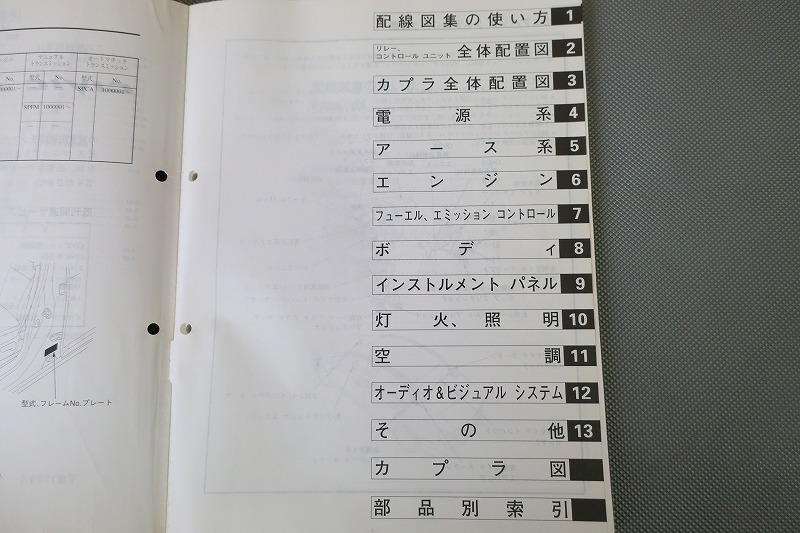 マニュアル
トランスミッション
オートマチック
トランスミッション
No.
型式
No.
型式
No.
SPCA
1000001~
SPFM
1000001~
型式、フレームNo.プレート
配線図集の使い方 1
リレー、
コントロール ユニット 全体配置図 2
カプラ全体配置図 3
電源系 4
アース系 5
エンジン 6
フューエル、エミッション コントロール 7
ボディ 8
インストルメント パネル 9
灯火、照明 10
空調 11
オーディオ&ビジュアル システム 12
その他 13
カプラ図
部品別索引